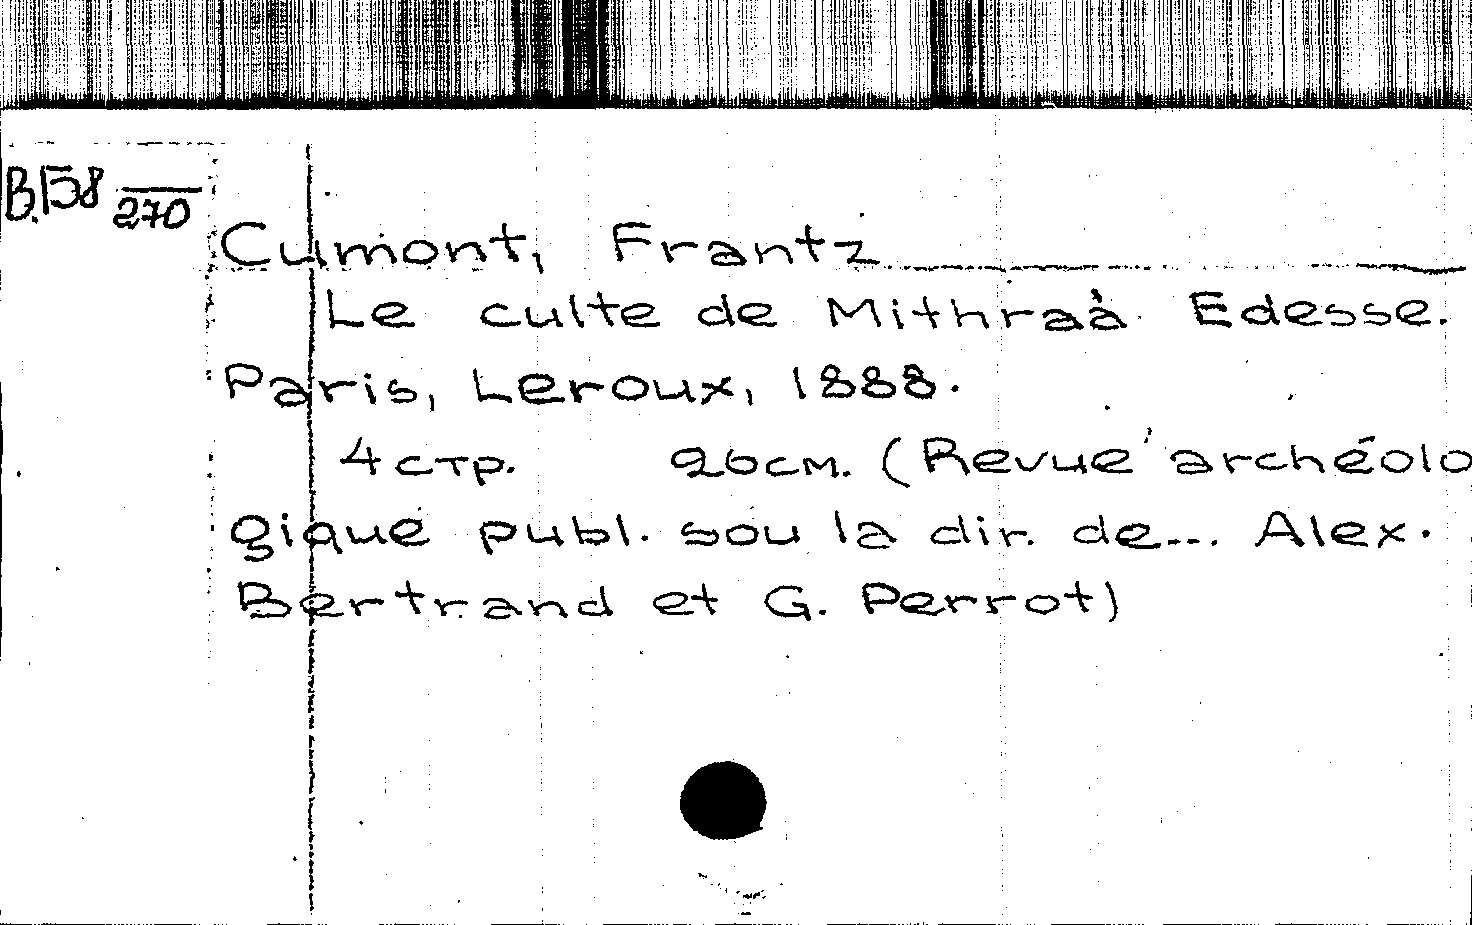 B.158 270
Cumont, Frantz
Le culte de Mithra à Edesse.
Paris, Leroux, 1888.
4 стр. 26 см. (Revue archéolo
gique publ. sou la dir. de... Alex.
Bertrand et G. Perrot)